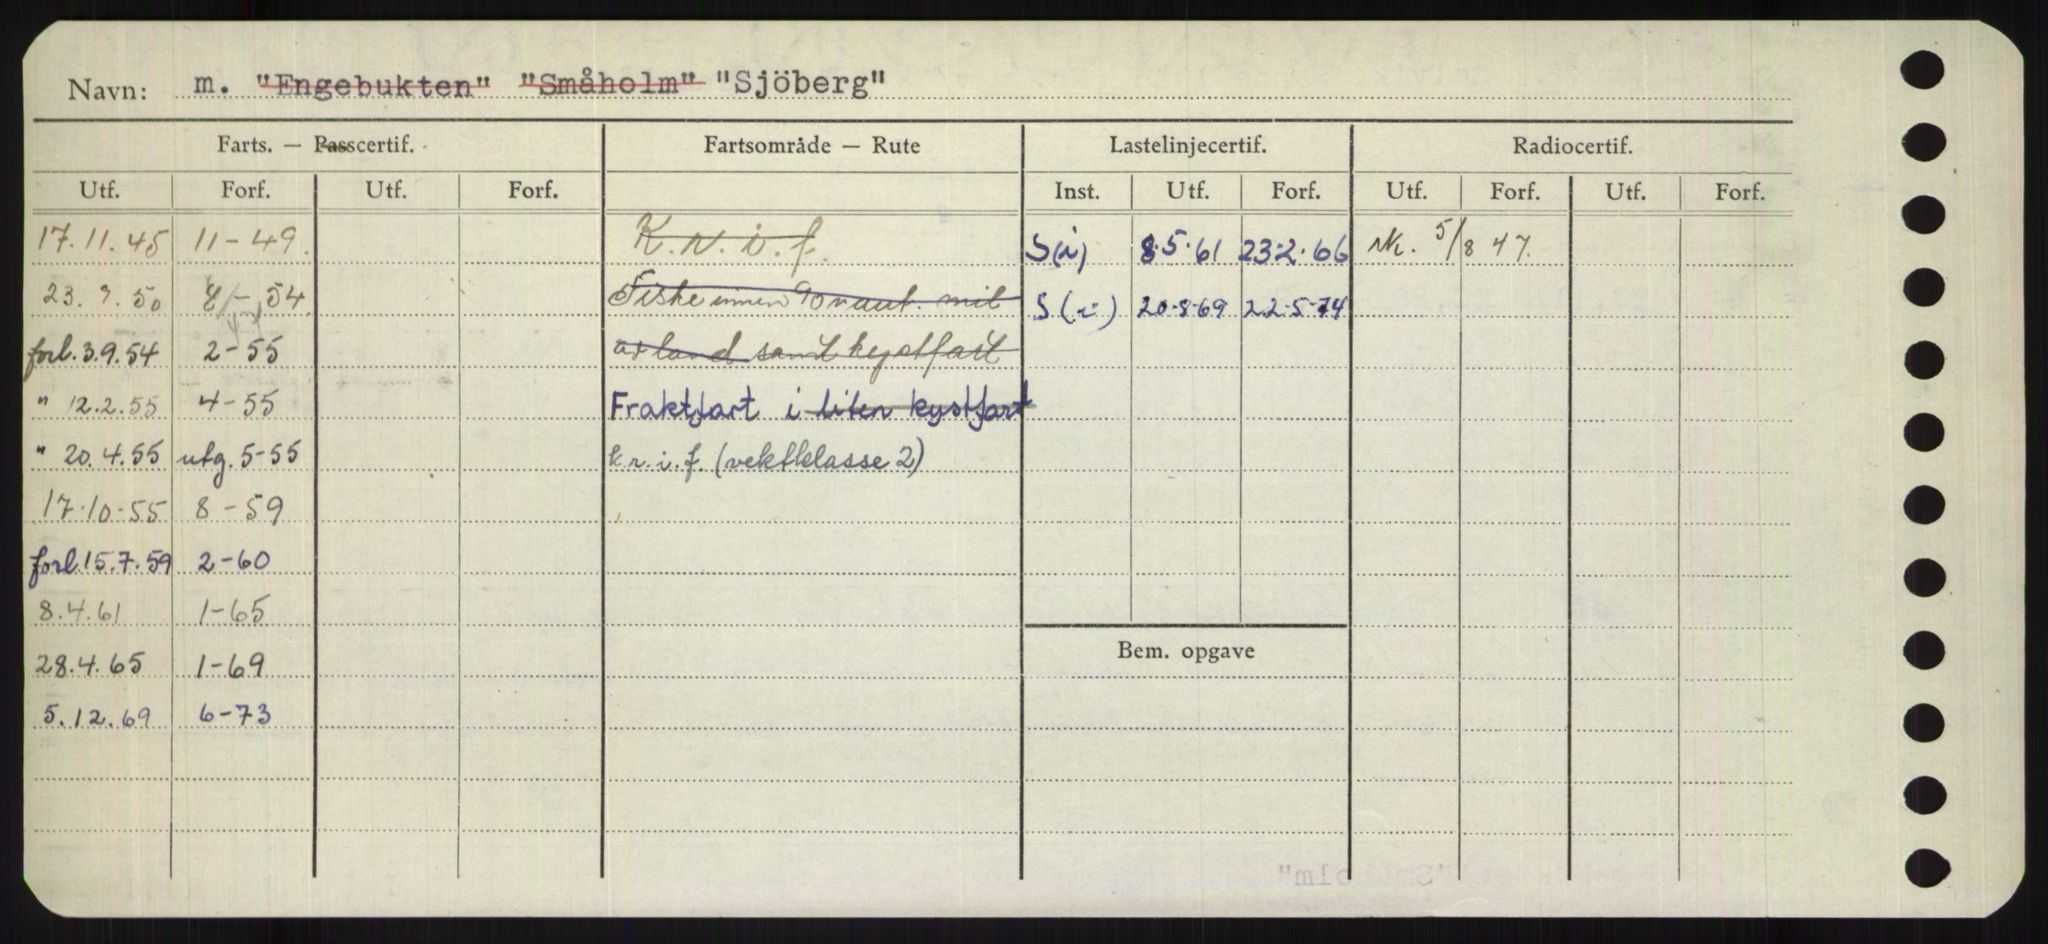 Navn: m. "Engebukten" "Småholm" "Sjöberg"
Farts. — Passcertif. Fartsområde — Rute Lastelinjecertif. Radiocertif.
Utf. Forf. Utf. Forf. Inst. Utf. Forf. Utf. Forf. Utf. Forf.
17.11.45 11-49. K.r.i.f. S(i) 8.5.61 23.2.66 Nk. 5/8 47.
23.9.50 8-54. Fiske innen 90 naut. mil S(i) 20.8.69 22.5.74
forl. 3.9.54 2-55 av land samt kystfart
" 12.2.55 4-55 Fraktfart i liten kystfart
" 20.4.55 utg. 5-55 k r. i. f. (vektklasse 2)
17.10.55 8-59
forl. 15.7.59 2-60
8.4.61 1-65
Bem. opgave
28.4.65 1-69
5.12.69 6-73